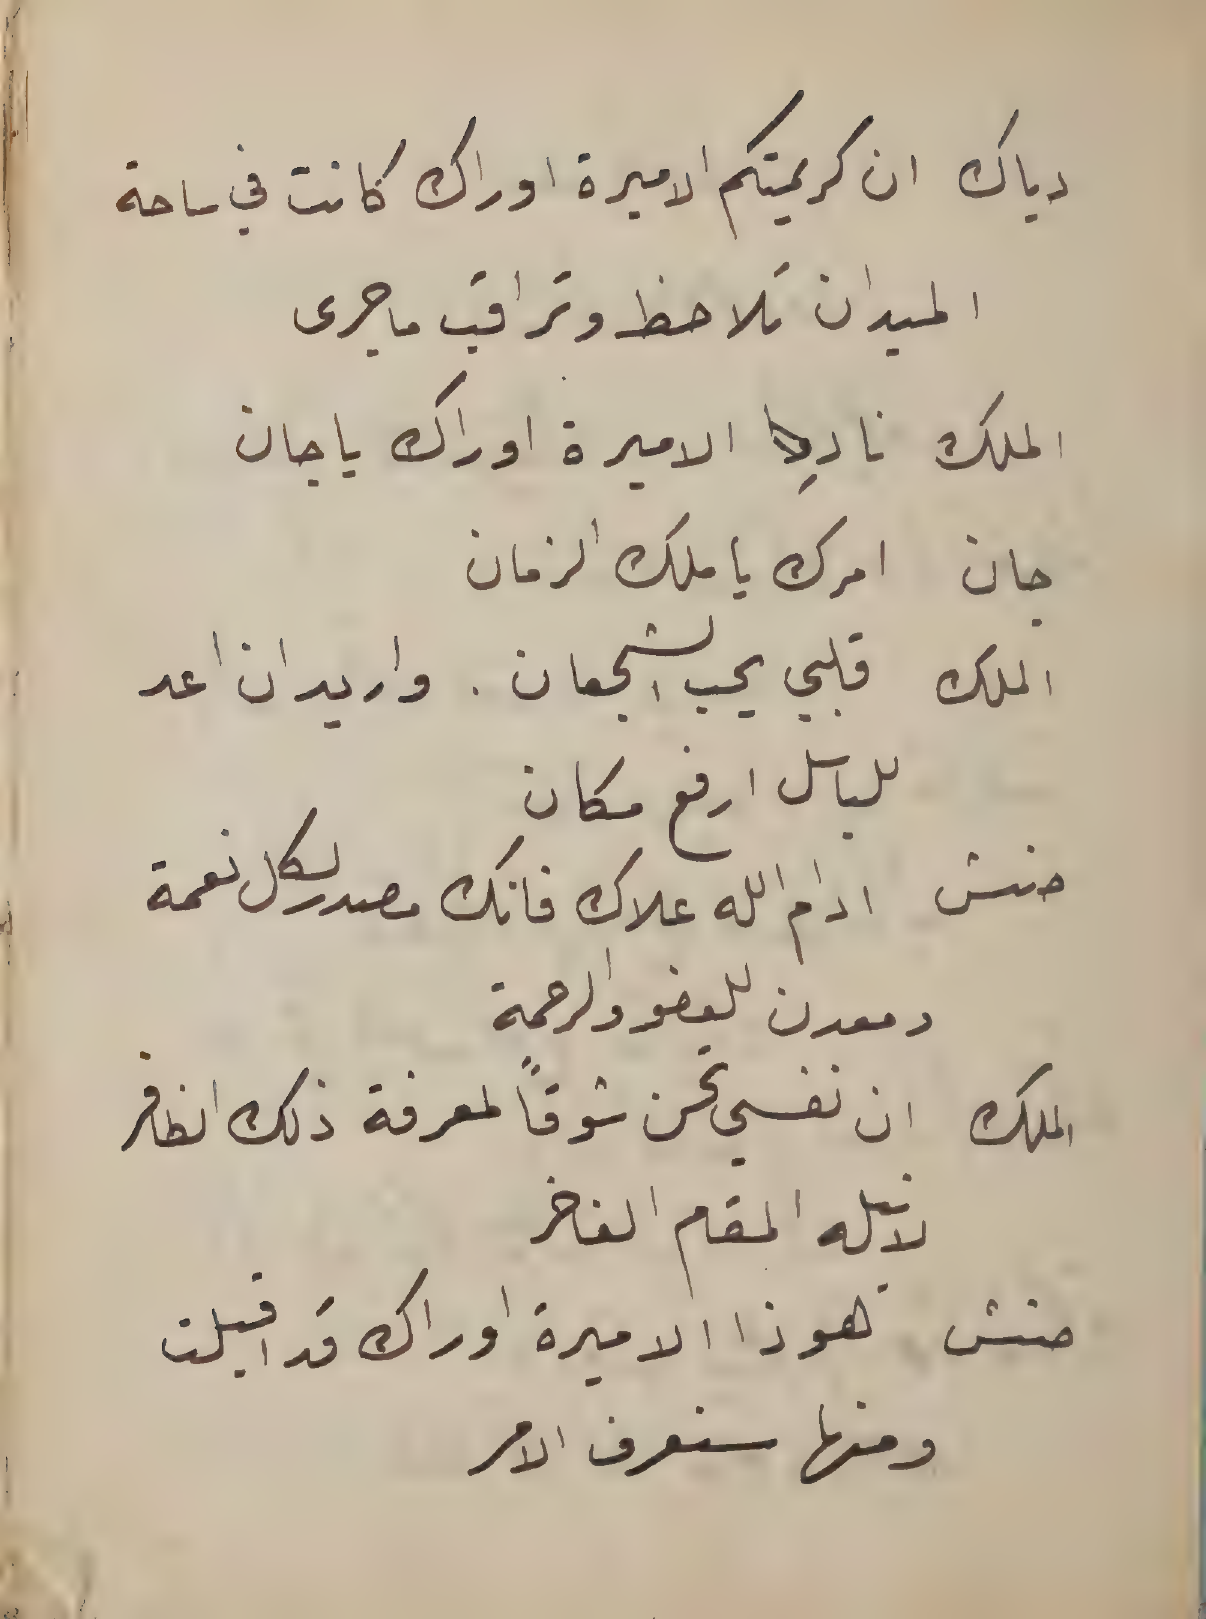 دياك ان كريمتكم الاميرة اوراك كانت في ساحة
الميدان تلاحظ وتراقب ماجرى
الملك نادِ الاميرة اوراك ياجان
جان امرك يا ملك الزمان
الملك قلبي يحب الشجعان . واريد ان اعد
للباسل ارفع مكان
منتش ادام الله علاك فانك مصدر لكل نعمة
ومعدن للعفو والرحمة
الملك ان نفسي تحن شوقاً لمعرفة ذلك الظافر
لانيله المقام الفاخر
منتش هوذا الاميرة اوراك قد اقبلت
ومنها سنعرف الامر